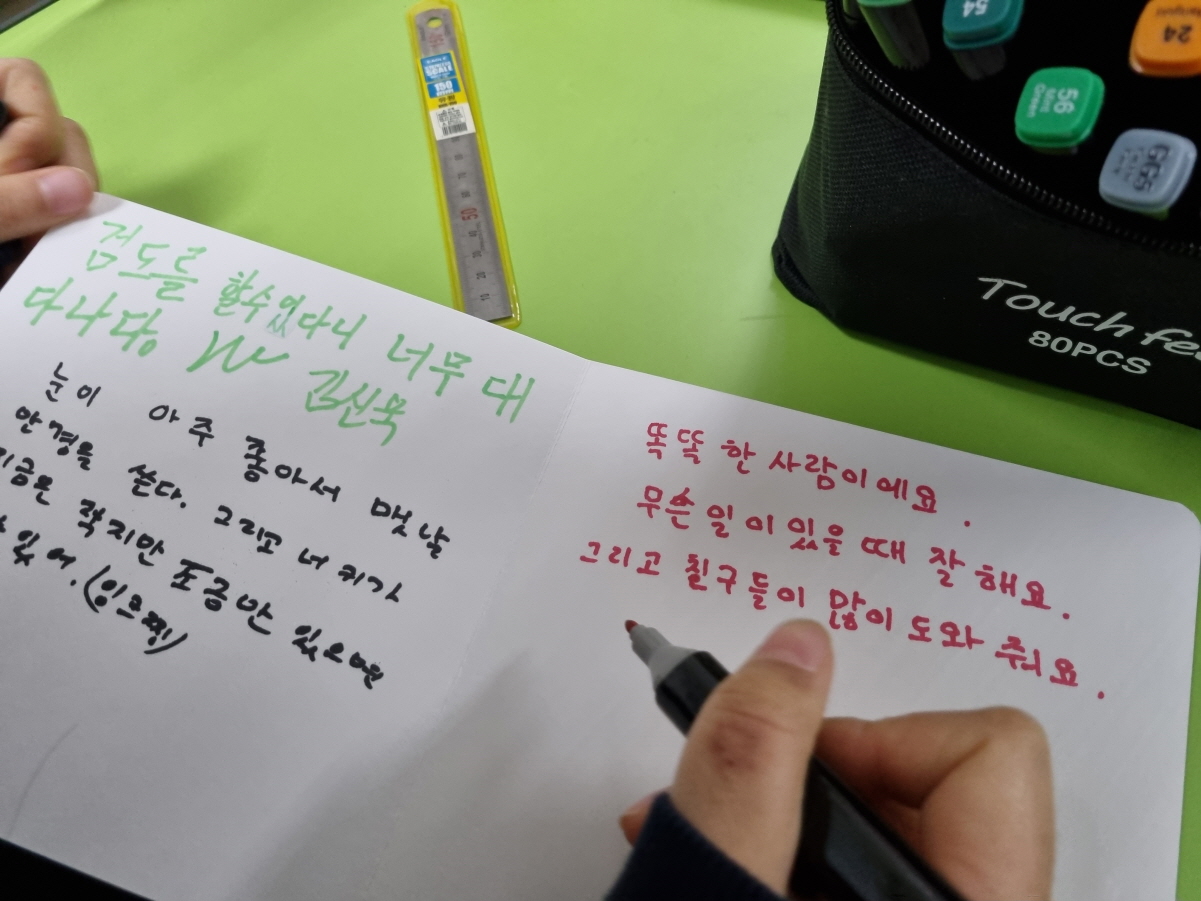 검도를 할수있다니 너무 대
다나당. 김신목
눈이 아주 좋아서 맷날
안경을 쓴다. 그리고 너 키가
작지만 조금만 있으면
있어.
똑똑 한 사람이에요.
무슨 일이 있을 때 잘 해요.
그리고 친구들이 많이 도와 줘요.
Touch
80PCS
54
24
56
Mint
Green
GG5
50